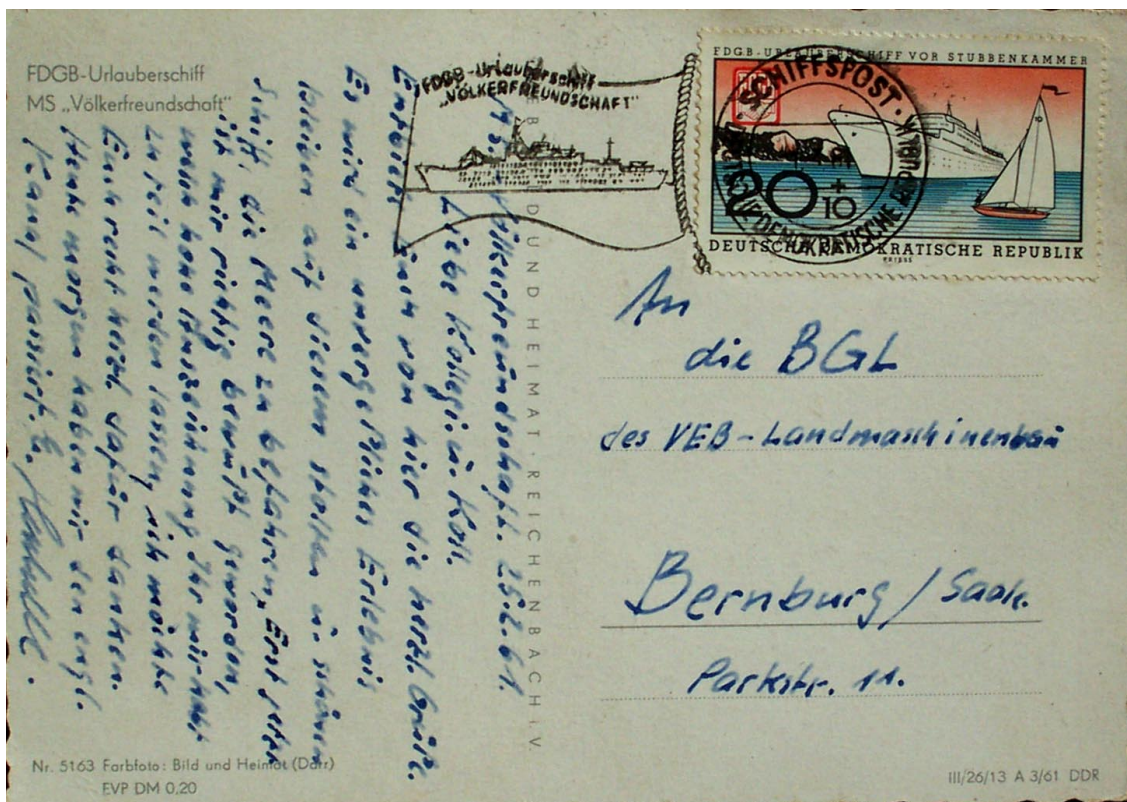 FDGB-Urlauberschiff
MS „Völkerfreundschaft"
FDGB-Urlauberschiff
„VÖLKERFREUNDSCHAFT"
FDGB-URLAUBERSCHIFF VOR STUBBENKAMMER
20+10
DEUTSCHE DEMOKRATISCHE REPUBLIK
SCHIFFSPOST
DEUTSCHE DEMOKRATISCHE REPUBLIK
Völkerfreundschaft. 25.2.61.
Liebe Kollegi. u. Koll.
Euch von hier die herzl. Grüße.
Es wird ein unvergeßliches Erlebnis
bleiben auf diesem stolzen u. schönen
Schiff die Meere zu befahren. Erst jetzt
ist mir richtig bewußt geworden,
welch hohe Auszeichnung Ihr mir habt
zu teil werden lassen, ich möchte
Euch recht herzl. dafür danken.
Heute morgen haben wir den engl.
Kanal passiert. E.
BILD UND HEIMAT · REICHENBACH i. V.
An
die BGL
des VEB-Landmaschinenbau
Bernburg/Saale.
Parkstr. 11.
Nr. 5163 Farbfoto: Bild und Heimat (Darr)
EVP DM 0,20
III/26/13 A 3/61 DDR